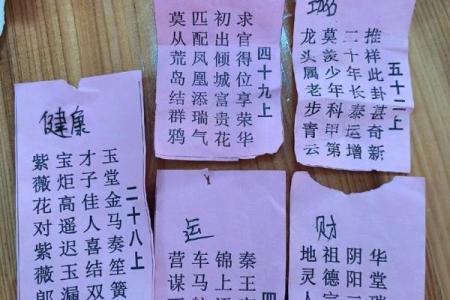 四十九上
求官得位享荣华
初出倾城富贵花
匹配凤凰添瑞气
莫从荒岛结群鸦
五十二上
推祥此卦甚奇新
二十年长泰运增
莫羡少年科甲第
龙头属老步青云
健康
二十八上
玉堂金马奏笙簧
才子佳人喜结双
宝炬高遥迟玉漏
紫薇花对紫薇郎
运
四
秦王
锦上
车马
营谋
财
华堂
阴阳
祖德
地灵人